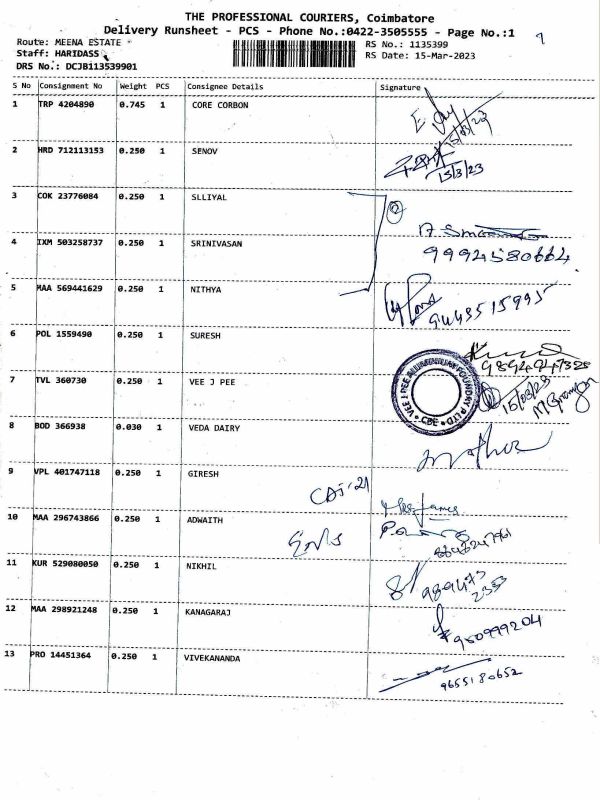 THE PROFESSIONAL COURIERS, Coimbatore
Delivery Runsheet - PCS - Phone No.:0422-3505555 - Page No.:1
Route: MEENA ESTATE
RS No.: 1135399
Staff: HARIDASS
RS Date: 15-Mar-2023
DRS No.: DCJB113539901
S No Consignment No Weight PCS Consignee Details Signature
1 TRP 4204890 0.745 1 CORE CORBON
15/03/23
2 HRD 712113153 0.250 1 SENOV
15/3/23
3 COK 23776084 0.250 1 SLLIYAL
4 IXM 503258737 0.250 1 SRINIVASAN
9994580664
5 MAA 569441629 0.250 1 NITHYA
6 POL 1559490 0.250 1 SURESH
7 TVL 360730 0.250 1 VEE J PEE
VEE J PEE ALUMINIUM FOUNDRY (P) LTD CBE
15/03/23
8 BOD 366938 0.030 1 VEDA DAIRY
9 VPL 401747118 0.250 1 GIRESH
10 MAA 296743866 0.250 1 ADWAITH
11 KUR 529080050 0.250 1 NIKHIL
12 MAA 298921248 0.250 1 KANAGARAJ
13 PRO 14451364 0.250 1 VIVEKANANDA
9655180652